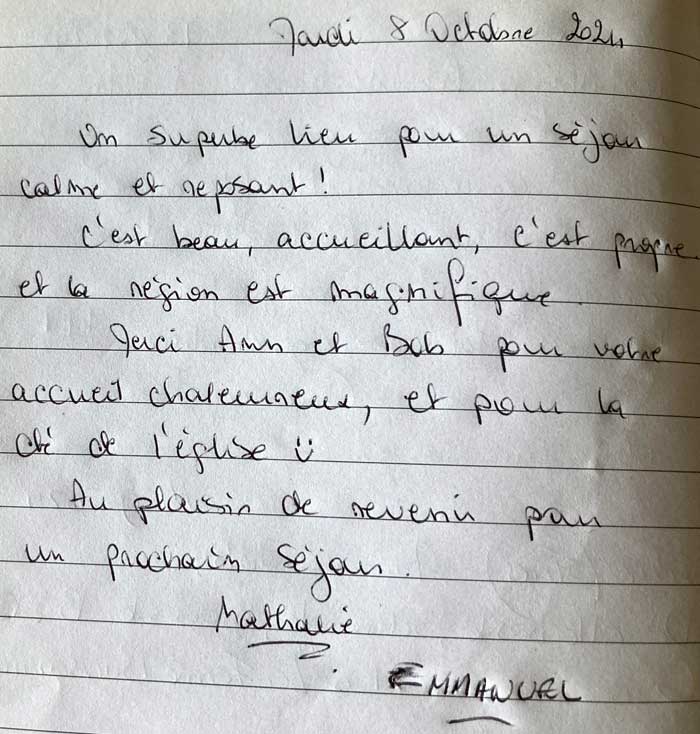 Jeudi 8 Octobre 2024
Un superbe lieu pour un séjour
calme et reposant !
C'est beau, accueillant, c'est propre
et la région est magnifique.
Merci Ann et Bob pour votre
accueil chaleureux, et pour la
clé de l'église
Au plaisir de revenir pour
un prochain séjour.
Nathalie
EMMANUEL